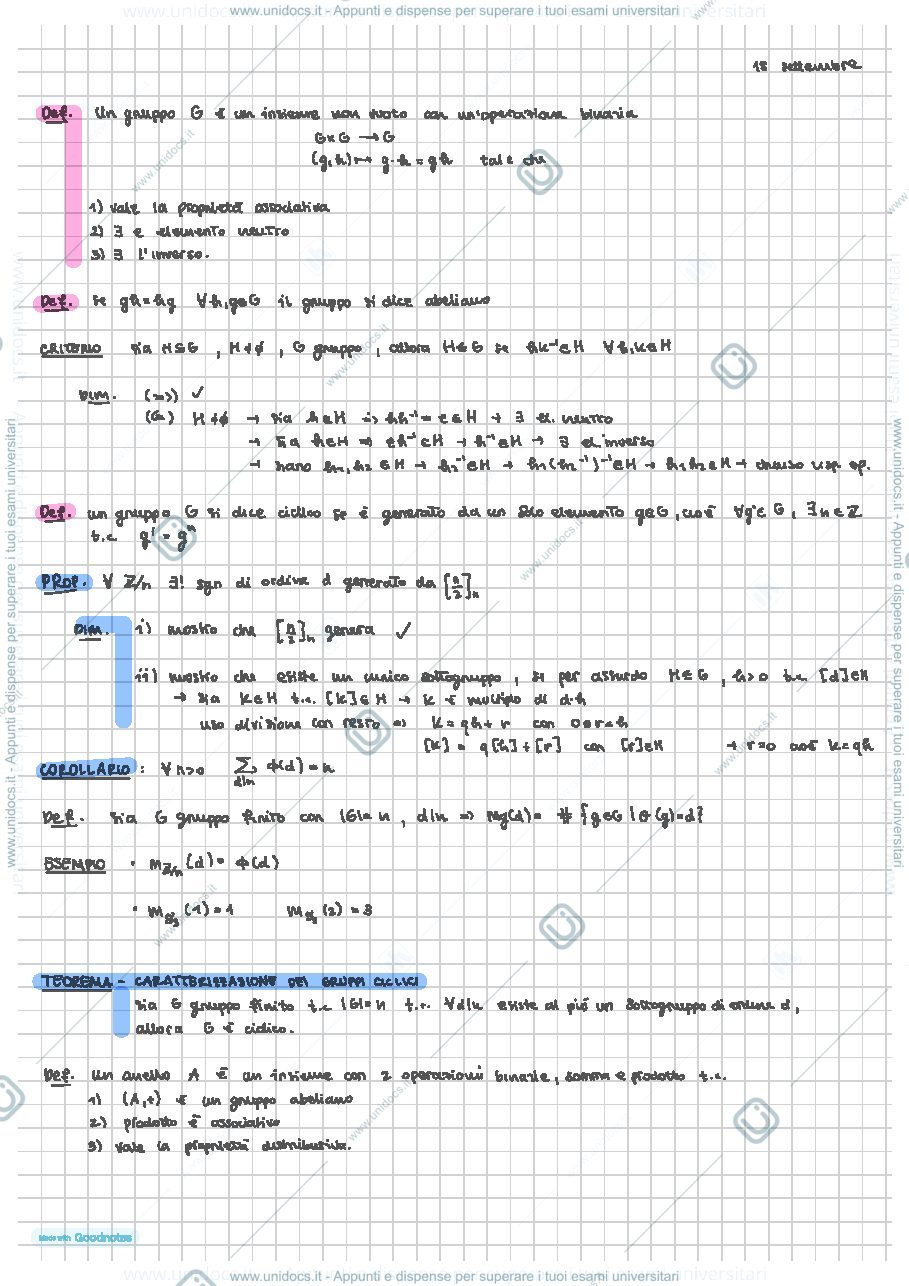 www.unidocs.it - Appunti e dispense per superare i tuoi esami universitari
18 settembre
Def. Un gruppo G è un insieme non vuoto con un'operazione binaria
G×G → G
(g,h) ↦ g·h = gh tale che
1) vale la proprietà associativa
2) ∃ e elemento neutro
3) ∃ l'inverso.
Def. se gh=hg ∀h,g∈G il gruppo si dice abeliano
CRITERIO sia H⊆G, H≠∅, G gruppo, allora H≤G se hk⁻¹∈H ∀h,k∈H
DIM. (⇒) ✓
(⇐) H≠∅ → sia h∈H ⇒ hh⁻¹=e∈H → ∃ el. neutro
→ sia h∈H ⇒ eh⁻¹∈H → h⁻¹∈H → ∃ el. inverso
→ siano h₁,h₂∈H → h₂⁻¹∈H → h₁(h₂⁻¹)⁻¹∈H → h₁h₂∈H → chiuso risp. op.
Def. un gruppo G si dice ciclico se è generato da un solo elemento g∈G, cioè ∀g'∈G, ∃n∈Z
t.c. g' = gⁿ
PROP. ∀ Z/n ∃! sgr di ordine d generato da [n/2]ₙ
DIM. i) mostro che [n/2]ₙ genera ✓
ii) mostro che esiste un unico sottogruppo, si per assurdo H≤G, h>0 t.c. [d]∈H
→ sia k∈H t.c. [k]∈H → k è multiplo di d·h
uso divisione con resto ⇒ k=qh+r con 0≤r<h
[k] = q[h]+[r] con [r]∈H → r=0 cioè k=qh
COROLLARIO: ∀n>0 ∑_{d|n} Φ(d)=n
Def. sia G gruppo finito con |G|=n, d|n ⇒ M_G(d) = #{g∈G | o(g)=d}
ESEMPIO • M_{Z/n}(d) = Φ(d)
• M_{S₃}(1)=1 M_{S₃}(2)=3
TEOREMA - CARATTERIZZAZIONE DEI GRUPPI CICLICI
sia G gruppo finito t.c. |G|=n t.c. ∀d|n esiste al più un sottogruppo di ordine d,
allora G è ciclico.
Def. Un anello A è un insieme con 2 operazioni binarie, somma e prodotto t.c.
1) (A,+) è un gruppo abeliano
2) prodotto è associativo
3) vale la proprietà distributiva.
Made with Goodnotes
www.unidocs.it - Appunti e dispense per superare i tuoi esami universitari